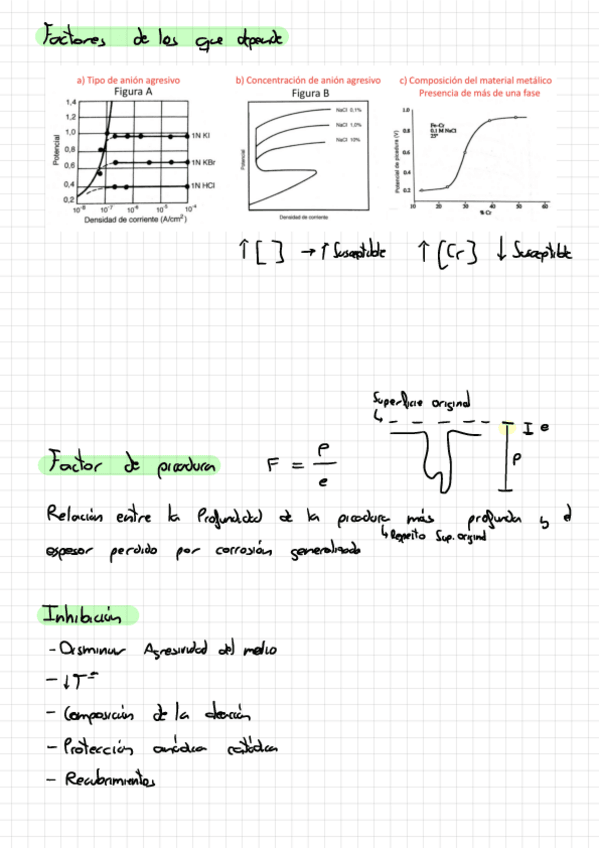 Factores de los que depende
a) Tipo de anión agresivo
Figura A
b) Concentración de anión agresivo
Figura B
c) Composición del material metálico
Presencia de más de una fase
Potencial
1,4
1,2
1,0
0,8
0,6
0,4
0,2
1N KI
1N KBr
1N HCl
10⁻⁸ 10⁻⁷ 10⁻⁶ 10⁻⁵ 10⁻⁴
Densidad de corriente (A/cm²)
Potencial
NaCl 0,1%
NaCl 1,0%
NaCl 10%
Densidad de corriente
Potencial de picadura (V)
1.0
0.8
0.6
0.4
0.2
Fe-Cr
0.1 M NaCl
25°
10 20 30 40 50 60
% Cr
↑ [ ] → ↑ Susceptible
↑ [Cr] ↓ Susceptible
Superficie original
e
p
Factor de picadura
F = p/e
Relación entre la Profundidad de la picadura más profunda y el
↳ Respeito Sup. original
espesor perdido por corrosión generalizada
Inhibición
- Disminuir Agresividad del medio
- ↓Tª
- Composición de la aleación
- Protección anódica catódica
- Recubrimientos